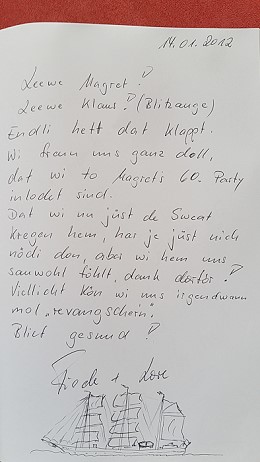 14.01.2012
Leewe Magret!
Leewe Klaus! (Blitzauge)
Endli hett dat klappt.
Wi freun uns ganz doll,
dat wi to Magrets 60. Party
inlodt sind.
Dat wi nu jüst de Sweat
kregen hem, har je jüst nich
nödi don, aber wi hem uns
sauwohl föhlt, dank dorför!
Viellicht kön wi uns irgendwann
mol "revangschern".
Blief gesund!
+ Lore